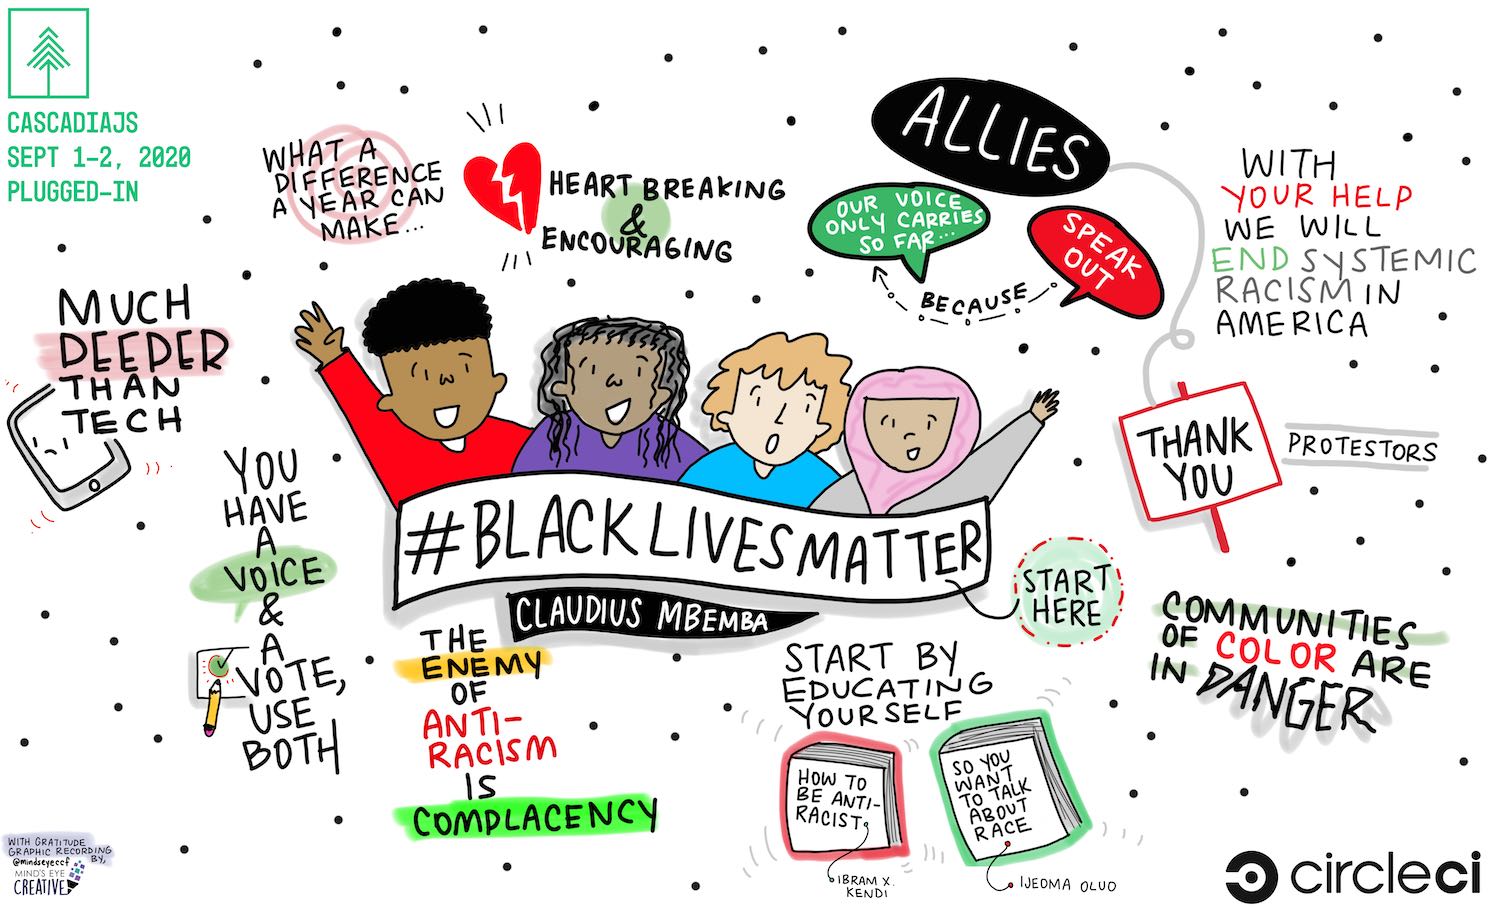 CASCADIAJS
SEPT 1-2, 2020
PLUGGED-IN
WHAT A
DIFFERENCE
A YEAR CAN
MAKE...
HEART BREAKING
&
ENCOURAGING
ALLIES
OUR VOICE
ONLY CARRIES
SO FAR...
BECAUSE
SPEAK
OUT
WITH
YOUR HELP
WE WILL
END SYSTEMIC
RACISM IN
AMERICA
THANK
YOU
PROTESTORS
MUCH
DEEPER
THAN
TECH
YOU
HAVE
A
VOICE
&
A
VOTE,
USE
BOTH
#BLACKLIVESMATTER
CLAUDIUS MBEMBA
START
HERE
THE
ENEMY
OF
ANTI-
RACISM
IS
COMPLACENCY
START BY
EDUCATING
YOURSELF
HOW TO
BE ANTI-
RACIST
IBRAM X.
KENDI
SO YOU
WANT
TO TALK
ABOUT
RACE
IJEOMA OLUO
COMMUNITIES
OF COLOR ARE
IN DANGER
WITH GRATITUDE
GRAPHIC RECORDING
BY,
@mindseyeccf
MIND'S EYE
CREATIVE
circleci